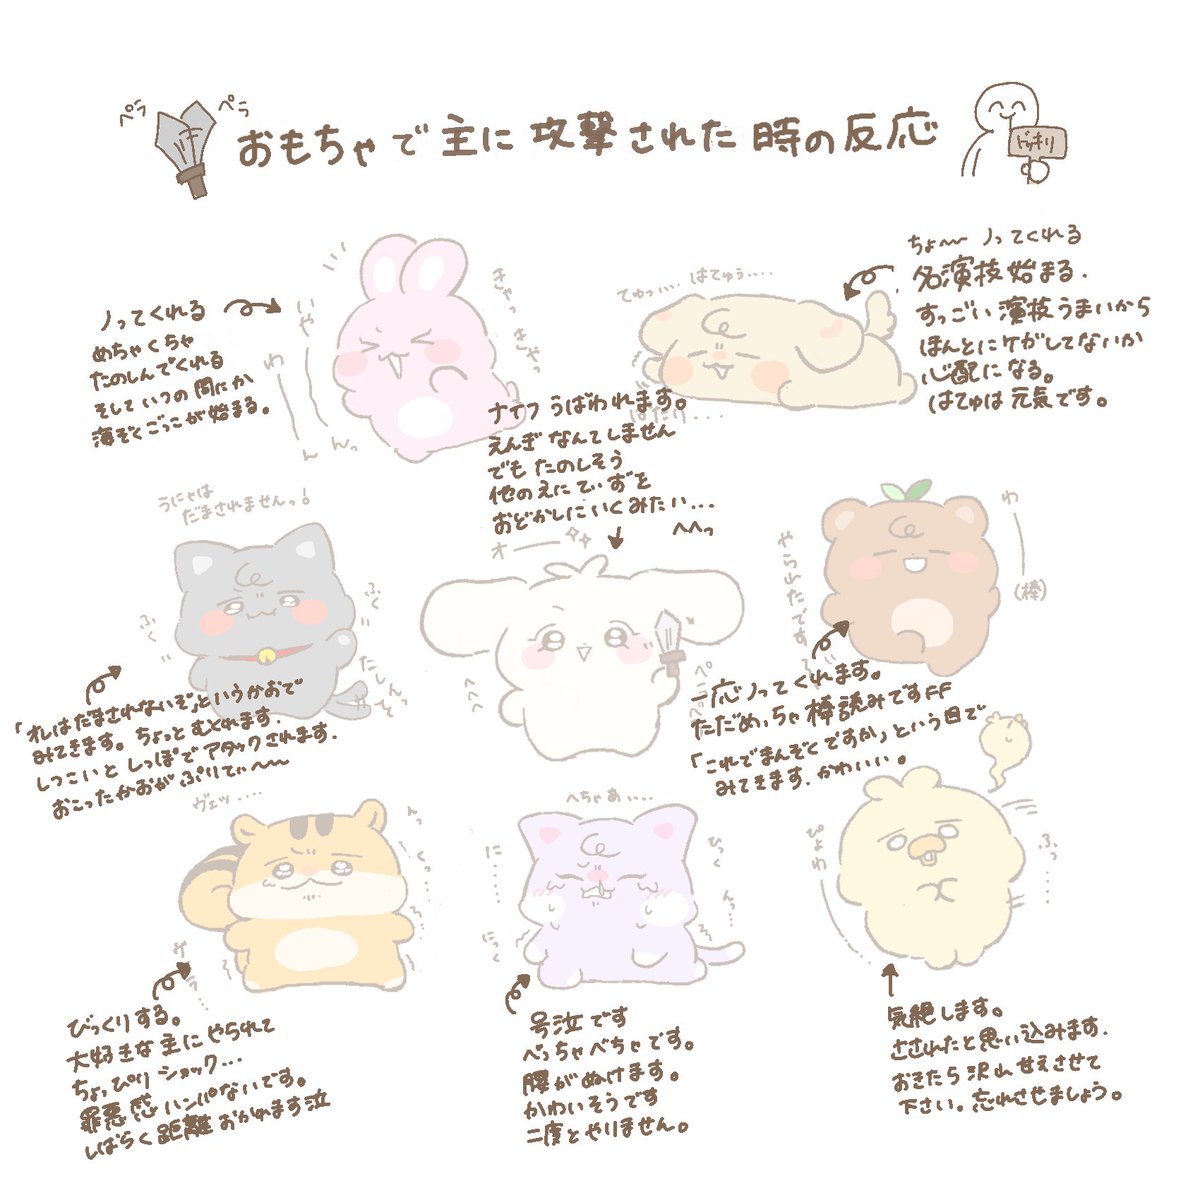 ペラ
ペラ
おもちゃで主に攻撃された時の反応
ドッキリ
ノってくれる
めちゃくちゃ
たのしんでくれる
そしていつの間にか
海ぞくごっこが始まる。
いや
わ
んっ
きゃっきゃっ
てゅっ…. はてゅう….
ぱたり・・・
ちょ〜 ノってくれる
名演技始まる.
すっごい演技うまいから
ほんとにケガしてないか
心配になる。
はてゅは元気です。
うにゃは
だまされませんっ!
ふく
ふく
「オレはだまされないぞ」というかおで
みてきます。ちょっとむくれます.
しつこいとしっぽでアタックされます.
おこったかおがぷりてぃ〜
ナイフうばわれます。
えんぎなんてしません
でもたのしそう
他のえにてぃずを
おどかしにいくみたい...
へへっ
オー
へへへ
わー(棒)
やられたです
一応ノってくれます。
ただめっちゃ棒読みですFF
「これでまんぞくですか」という目で
みてきます.かわいい。
ヴェッ....
びっくりする。
大好きな主にやられて
ちょっぴりショック...
罪悪感ハンパないです。
しばらく距離おかれます泣
へちゃあぃ....
に....
にっく
ひっく
んっ
号泣です
べっちゃべちゃです。
腰がぬけます。
かわいそうです
二度とやりません。
ぴょわ
ふっ
気絶します。
さされたと思い込みます.
おきたら沢山甘えさせて
下さい。忘れさせましょう。